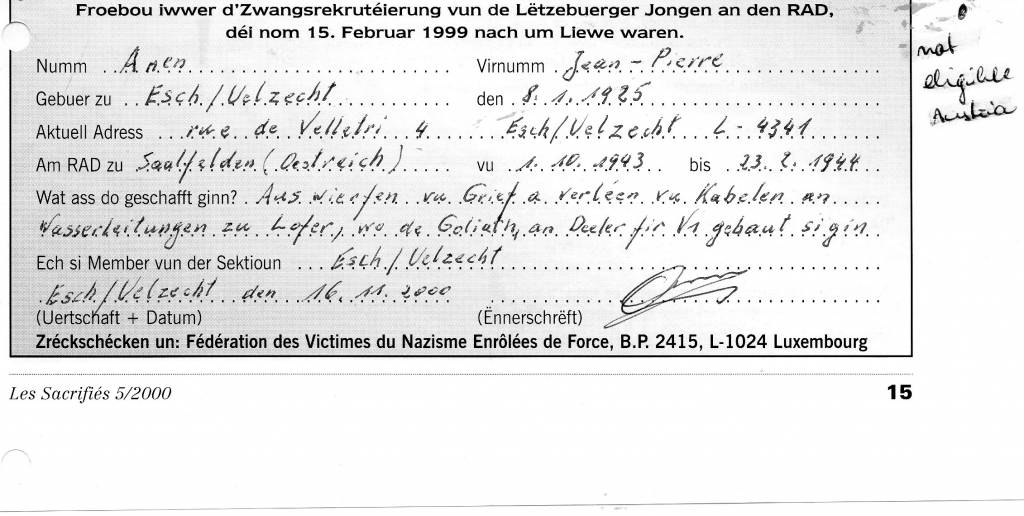 Froebou iwwer d'Zwangsrekrutéierung vun de Lëtzebuerger Jongen an den RAD,
déi nom 15. Februar 1999 nach um Liewe waren.
Numm Anen Virnumm Jean-Pierre
Gebuer zu Esch/Uelzecht den 8.1.1925
Aktuell Adress rue de Velletri 4 Esch/Uelzecht L-4341
Am RAD zu Saalfelden (Oestreich) vu 1.10.1943 bis 23.2.1944
Wat ass do geschafft ginn? Auswierfen vu Grief a verléen vu Kabelen an
Wasserleitungen zu Lofer, wo de Goliath, an Deeler fir V1 gebaut si gin
Ech si Member vun der Sektioun Esch/Uelzecht
Esch/Uelzecht den 16.11.2000
(Uertschaft + Datum) (Ënnerschrëft)
Zréckschécken un: Fédération des Victimes du Nazisme Enrôlées de Force, B.P. 2415, L-1024 Luxembourg
Les Sacrifiés 5/2000 15
not
eligible
Austria